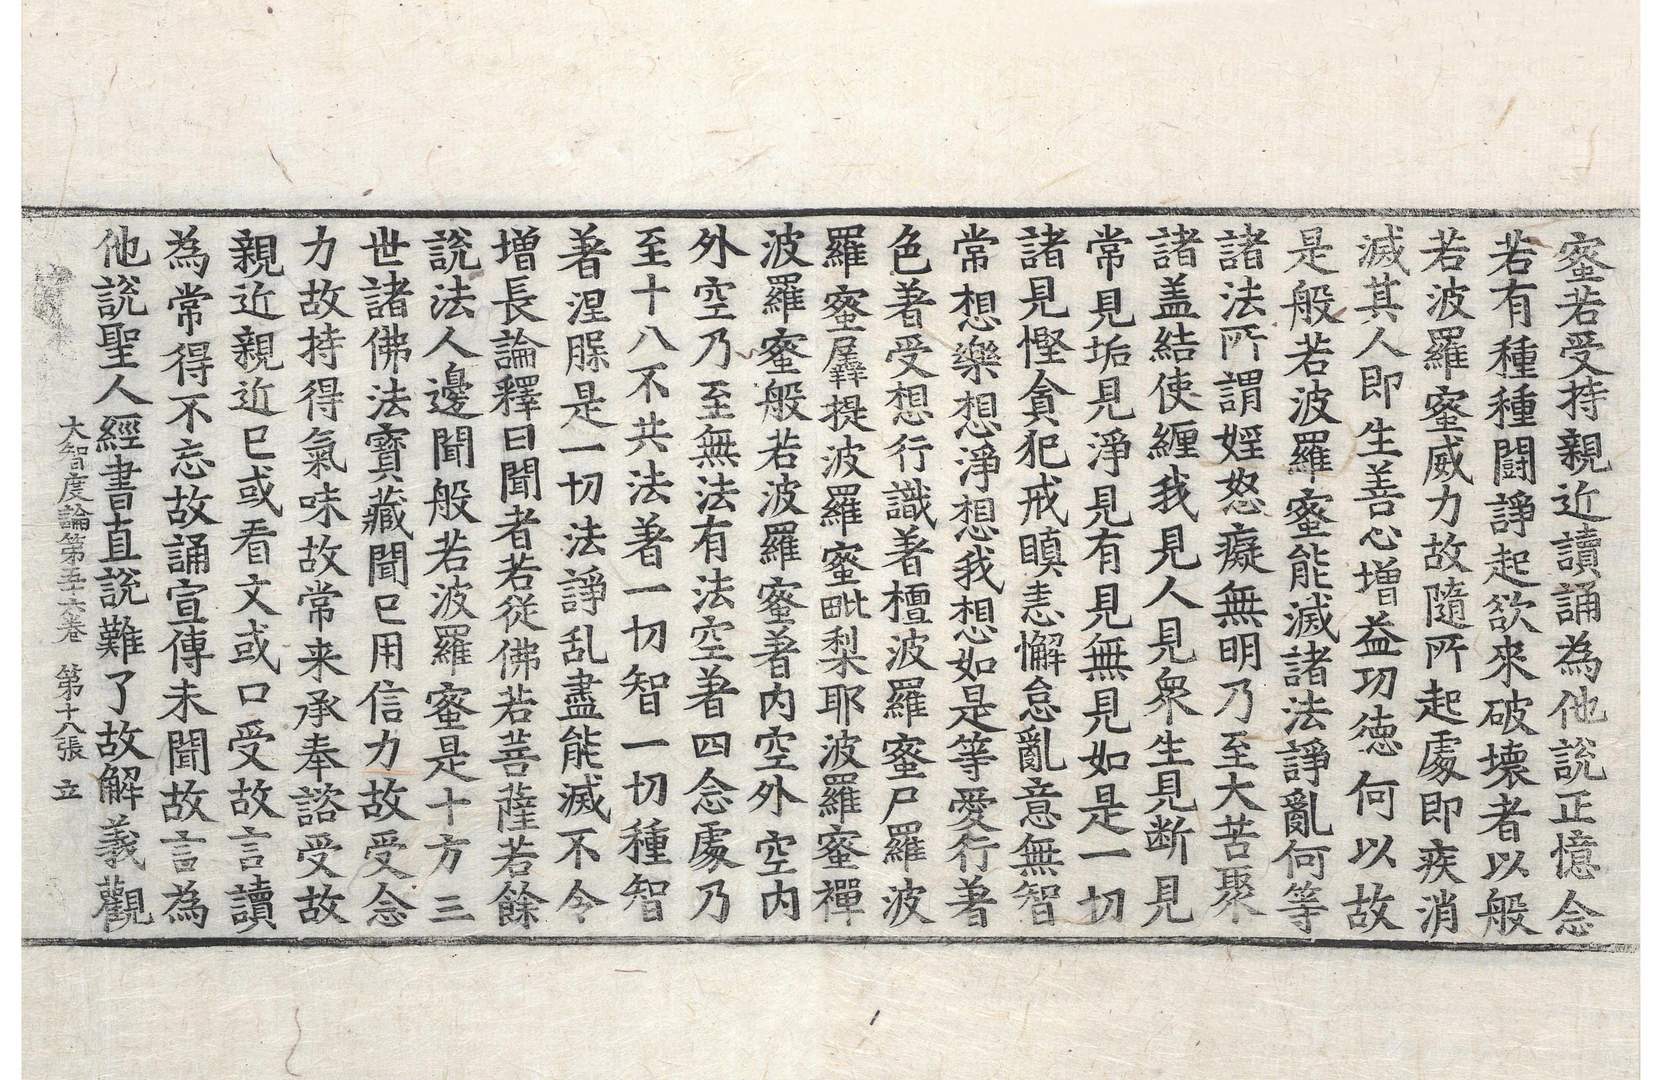 蜜若受持親近讀誦為他說正憶念
若有種種鬪諍起欲來破壞者以般
若波羅蜜威力故隨所起處即疾消
滅其人即生善心增益功德何以故
是般若波羅蜜能滅諸法諍亂何等
諸法所謂婬怒癡無明乃至大苦聚
諸盖結使纏我見人見衆生見断見
常見垢見淨見有見無見如是一切
諸見慳貪犯戒瞋恚懈怠亂意無智
常想樂想淨想我想如是等愛行著
色著受想行識著檀波羅蜜尸羅波
羅蜜羼提波羅蜜毗梨耶波羅蜜禪
波羅蜜般若波羅蜜著内空外空内
外空乃至無法有法空著四念處乃
至十八不共法著一切智一切種智
著涅槃是一切法諍乱盡能滅不令
增長論釋曰聞者若從佛若菩薩若餘
說法人邊聞般若波羅蜜是十方三
世諸佛法寶藏聞已用信力故受念
力故持得氣味故常来承奉諮受故
親近親近已或看文或口受故言讀
為常得不忘故誦宣傳未聞故言為
他說聖人經書直說難了故解義觀
大智度論第五十六卷 第十八張 立